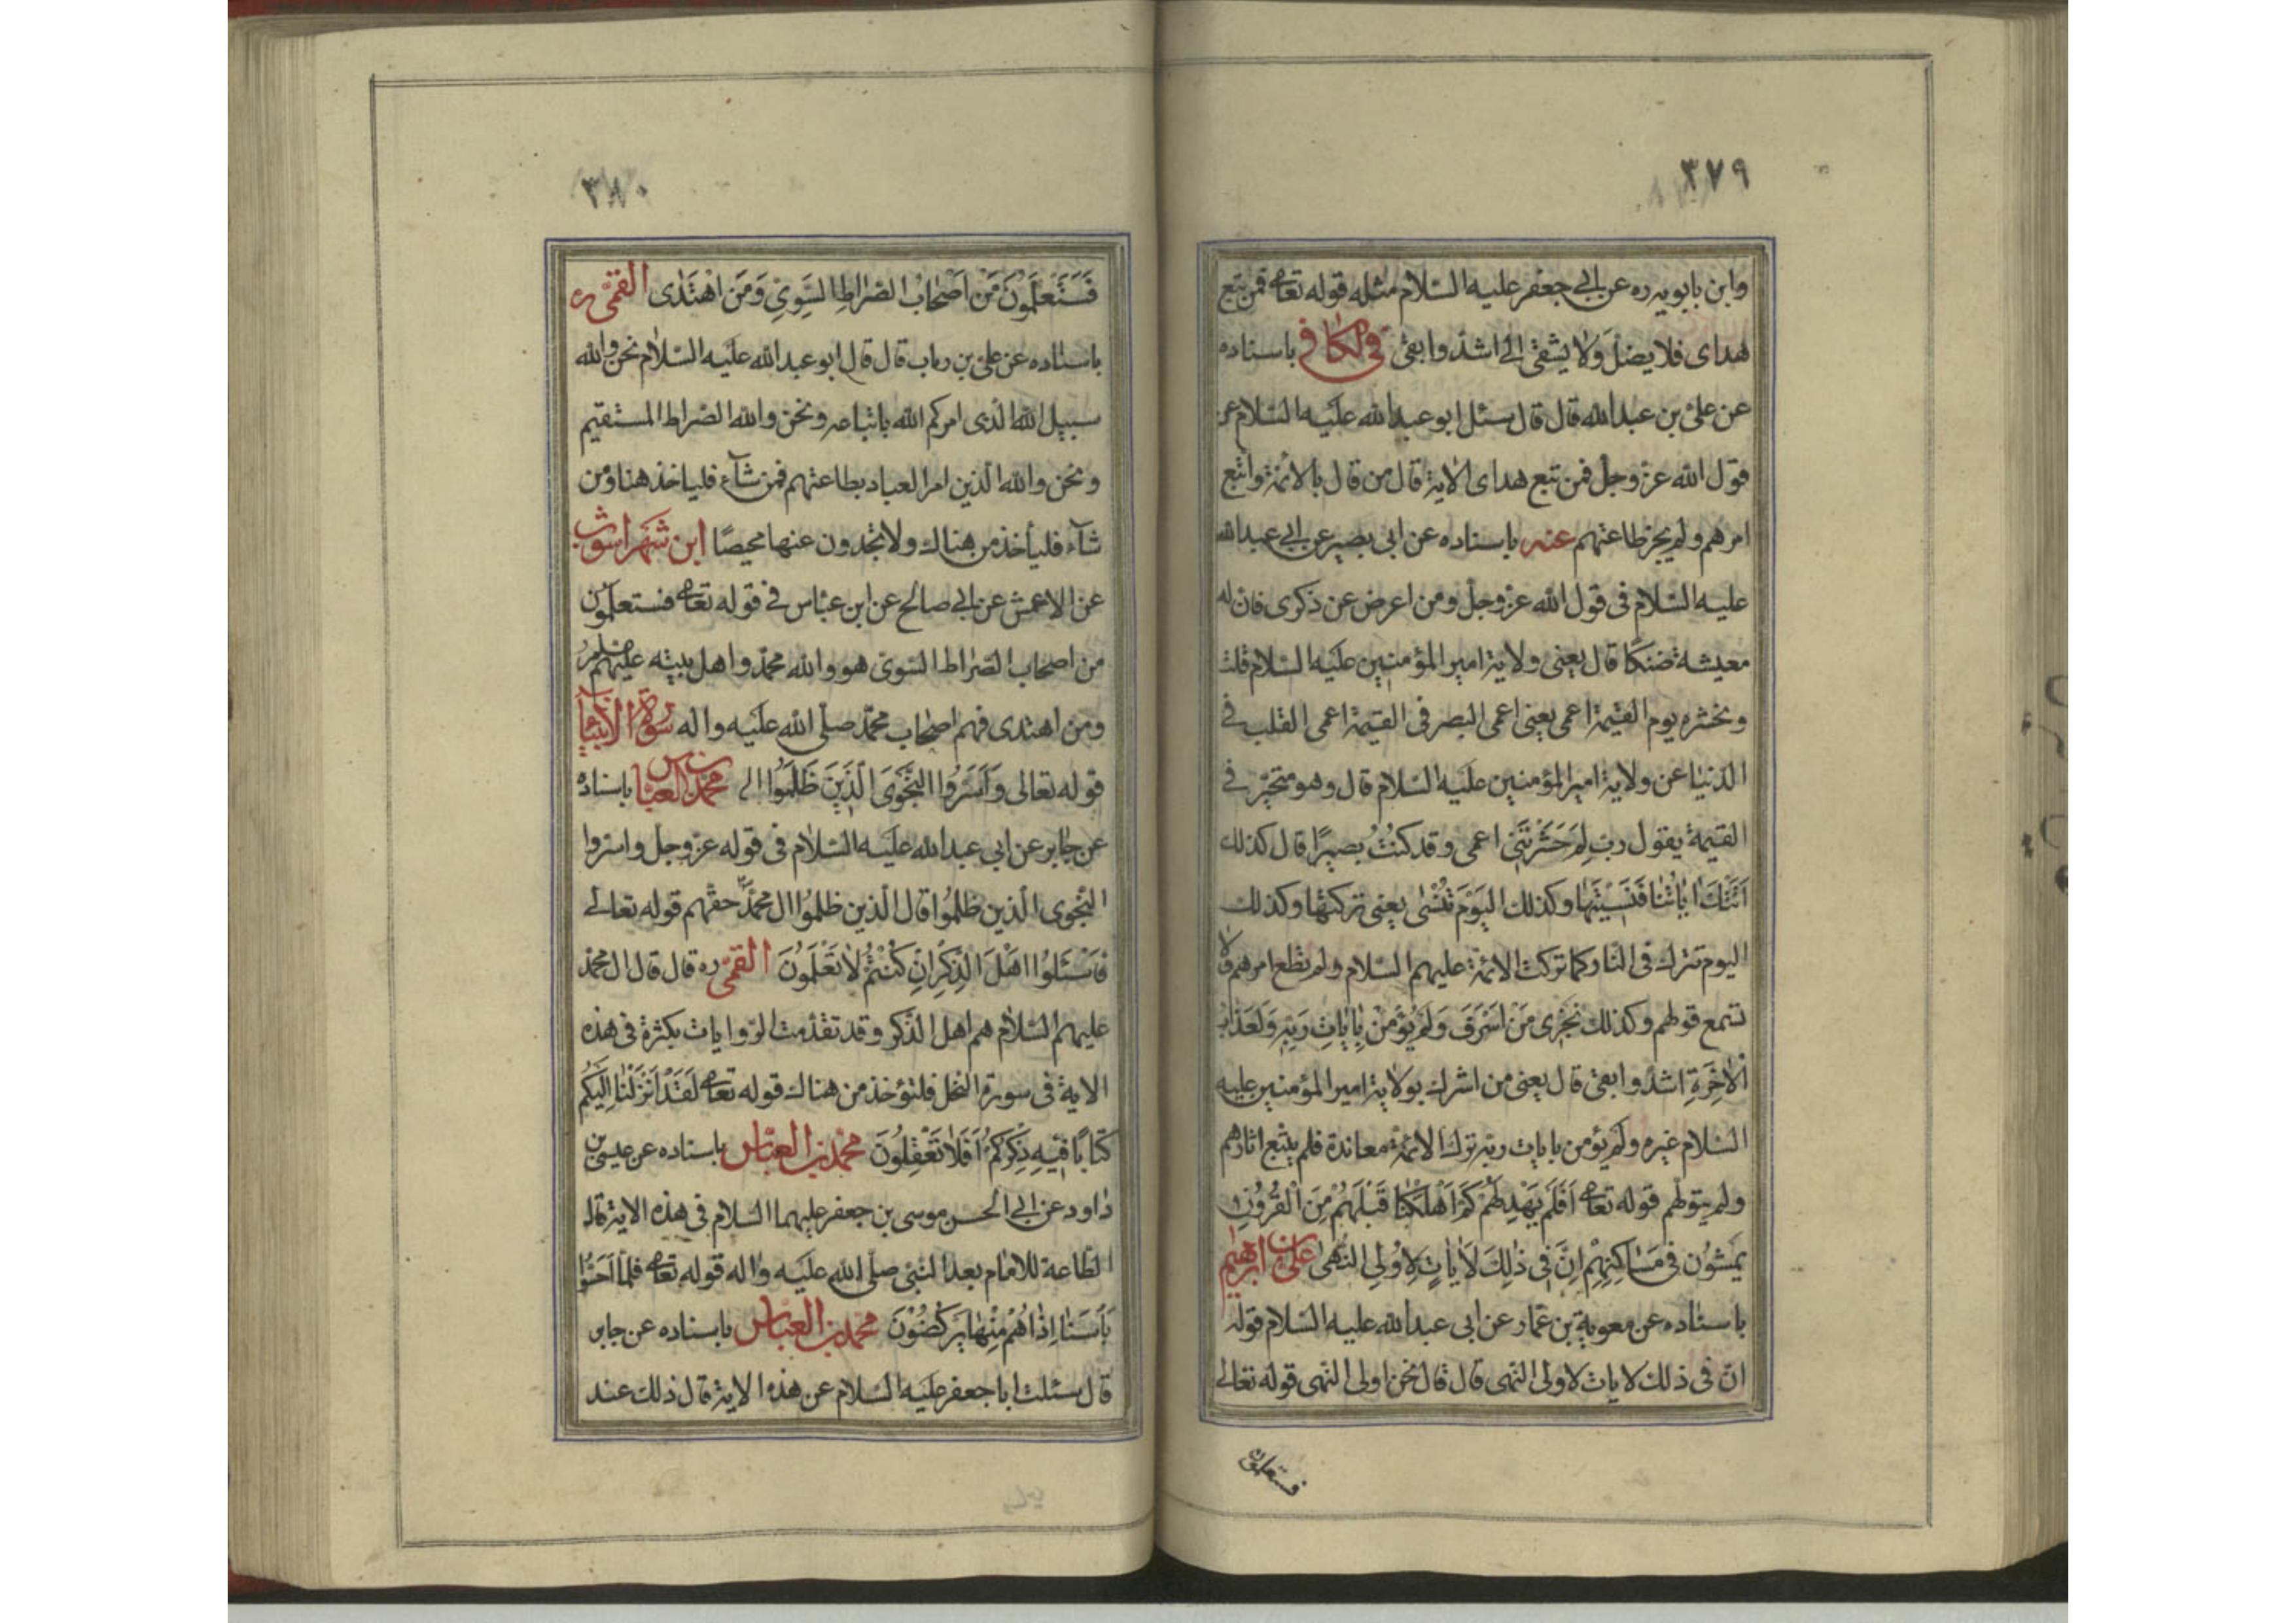 ٣٧٩
وابن بابويه ره عن ابي جعفر عليه السلام مثله قوله تعالى فمن تبع
هداى فلا يضل ولا يشقى الى اشد وابقى في الكافي باسناده
عن على بن عبد الله قال قال سئل ابو عبد الله عليه السلام عن
قول الله عز وجل فمن تبع هداى الاية قال من قال بالائمة واتبع
امرهم ولم يجز طاعتهم عنه باسناده عن ابى بصير عن ابي عبد الله
عليه السلام فى قول الله عز وجل ومن اعرض عن ذكرى فان له
معيشة ضنكا قال يعنى ولاية امير المؤمنين عليه السلام قلت
ونحشره يوم القيمة اعمى يعنى اعمى البصر فى القيمة اعمى القلب في
الدنيا عن ولاية امير المؤمنين عليه السلام قال وهو متحير في
القيمة يقول رب لِمَ حَشَرْتَنِى اعمى وقد كنتُ بصيرًا قال كذلك
اَتَتْكَ اٰيٰاتُنٰا فَنَسِيْتَهٰا وكذلك اليَوْمَ تُنْسٰى يعنى تركتها وكذلك
اليوم تترك فى النار كما تركت الائمة عليهم السلام ولم تطع امرهم ولا
تسمع قولهم وكذلك نَجْزِى مَنْ اَسْرَفَ وَلَمْ يُؤْمِنْ بِاٰيٰاتِ رَبِّهِ وَلَعَذٰابُ
الْاٰخِرَةِ اشدّ وابقى قال يعنى من اشرك بولاية امير المؤمنين عليه
السلام غيره ولم يؤمن بايات ربه ترك الائمة معاندة فلم يتبع اثارهم
ولم يتولهم قوله تعالى اَفَلَمْ يَهْدِ لَهُمْ كَمْ اَهْلَكْنٰا قَبْلَهُمْ مِنَ الْقُرُوْنِ
يَمْشُوْنَ فى مَسٰاكِنِهِمْ اِنَّ فِى ذٰلِكَ لَاٰيٰاتٍ لِاُولِى النُّهٰى على بن ابرهيم
باسناده عن معوية بن عمار عن ابى عبد الله عليه السلام قوله
ان فى ذلك لايات لاولى النهى قال قال نحن اولى النهى قوله تعالى
فستعلمون
٣٨٠
فَسَتَعْلَمُوْنَ مَنْ اَصْحٰابُ الصّرٰاطِ السَّوِىِّ وَمَنِ اهْتَدٰى القمّى ره
باسناده عن على بن رياب قال قال ابو عبد الله عليه السلام نحن والله
سبيل الله الذى امركم الله باتباعه ونحن والله الصراط المستقيم
ونحن والله الذين امر العباد بطاعتهم فمن شآء فلياخذ هنا ومن
شآء فليأخذ من هناك ولا تجدون عنها محيصًا ابن شهراسوب
عن الاعمش عن ابي صالح عن ابن عباس في قوله تعالى فستعلمون
من اصحاب الصراط السوى هو والله محمد واهل بيته عليهم
ومن اهتدى فهم اصحاب محمد صلى الله عليه واله سورة الانبيآء
قوله تعالى وَاَسَرُّوا النَّجْوَى الَّذِيْنَ ظَلَمُوْا الى محمد بن العباس باسناده
عن جابر عن ابى عبد الله عليه السلام فى قوله عز وجل واسروا
النجوى الذين ظلموا قال الذين ظلموا ال محمد حقهم قوله تعالى
فَاسْئَلُوا اَهْلَ الذِّكْرِ اِنْ كُنْتُمْ لٰا تَعْلَمُوْنَ القمّى ره قال قال ال محمد
عليهم السلام هم اهل الذكر وقد تقدمت الروايات بكثرة فى هذه
الاية فى سورة النحل فلتؤخذ من هناك قوله تعالى لَقَدْ اَنْزَلْنٰا اِلَيْكُمْ
كتٰابًا فيهِ ذِكْرُكُمْ اَفَلٰا تَعْقِلُوْنَ محمد بن العباس باسناده عن عيسى بن
داود عن ابي الحسن موسى بن جعفر عليهما السلام فى هذه الاية قال
الطاعة للامام بعد النبى صلى الله عليه واله قوله تعالى فلمّا اَحَسُّوْا
بَأْسَنٰا اِذٰا هُمْ مِنْهٰا يَرْكُضُوْنَ محمد بن العباس باسناده عن جابر
قال سئلت ابا جعفر عليه السلام عن هذه الاية قال ذلك عند